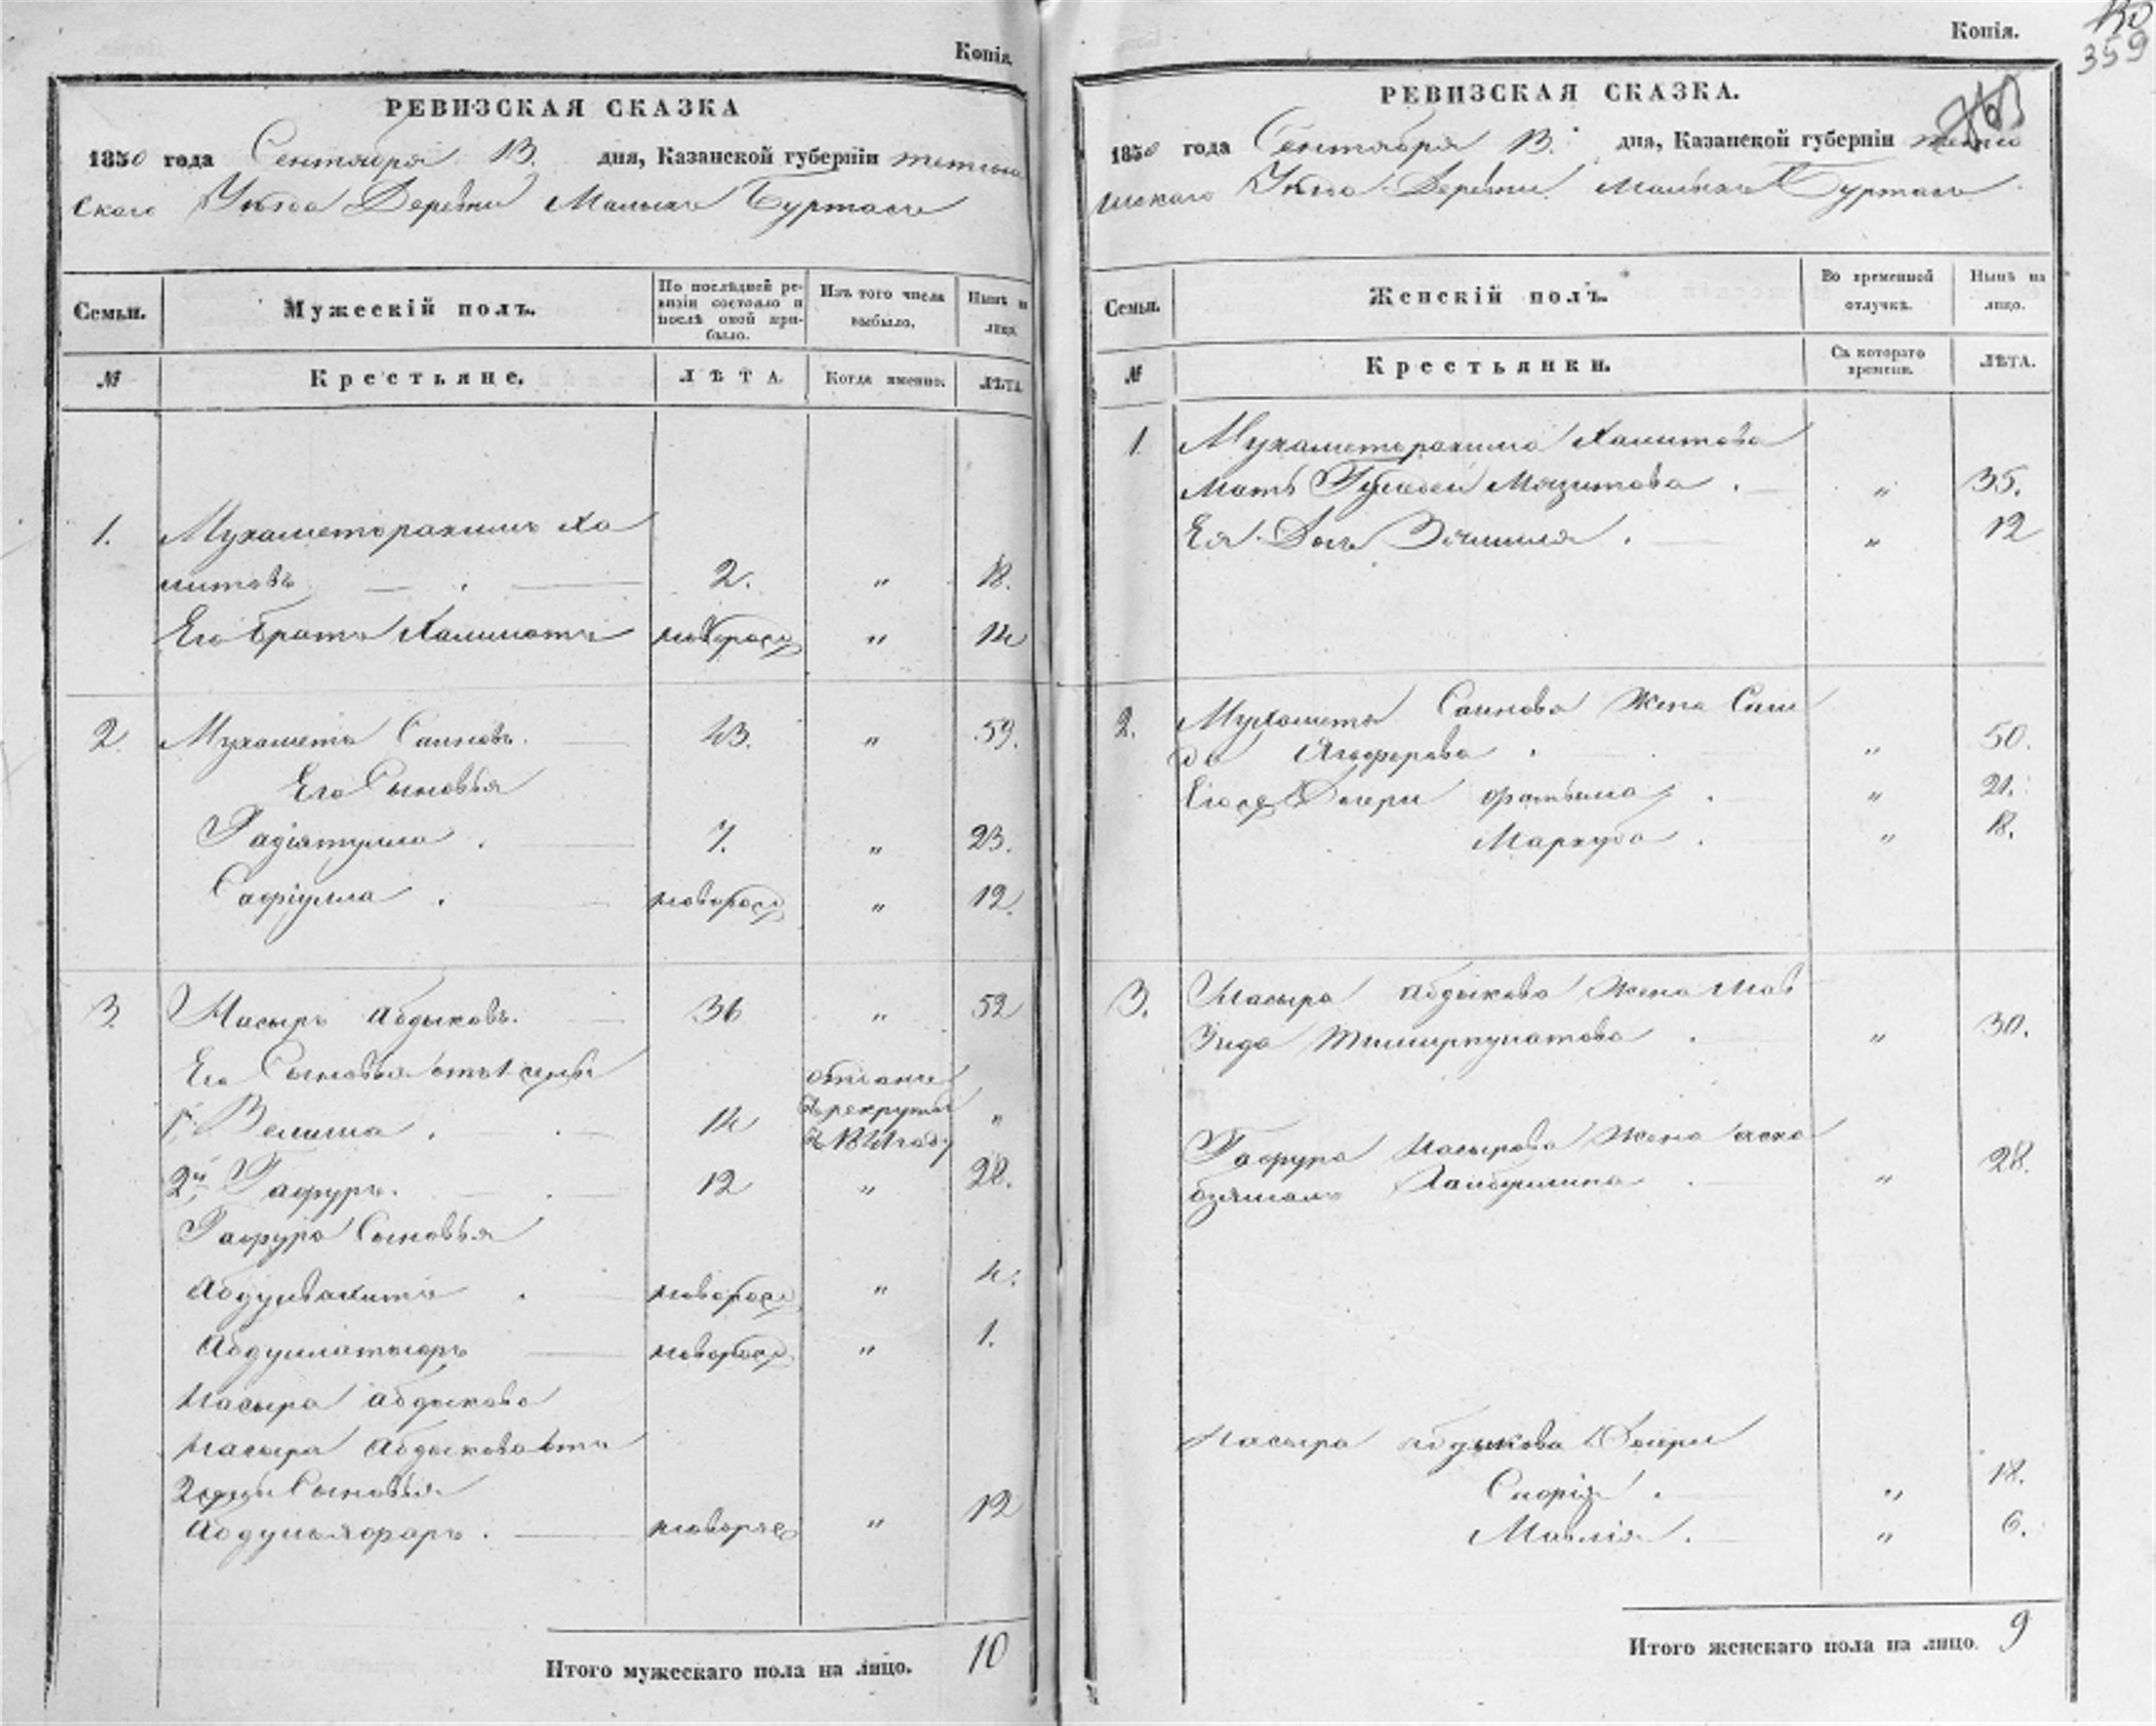 Копія
РЕВИЗСКАЯ СКАЗКА
1850 года Сентября 13. дня, Казанской губерніи Тетюш
скаго Уѣзда Деревни Малыхъ Буртасъ
Семьи.
Мужескій полъ.
По послѣдней ре-
визіи состояло и
послѣ оной при-
было.
Изъ того числа
выбыло.
Нынѣ на
лицо.
№
Крестьяне.
ЛѢТА.
Когда именно.
ЛѢТА
1. Мухаметрахимъ Ха
митовъ 2. " 18.
Его братъ новорожд " 14
2 Мухаметъ Саиновъ. 43. " 59.
Его Сыновья
Гадіятулла . 7. " 23.
Сафіулла . новорожд " 12.
3. Насыръ Абдыковъ. 36 " 52
Его Сыновья отъ 1 жены
отданъ
1й Велиша . 14 въ рекруты "
въ году
2й Гафуръ. 12 " 28.
Гафура Сыновья
Абдулвахитъ . новорожд " 4.
Абдуллатыфъ новорожд " 1.
Насыра Абдыкова
Насыра Абдыкова отъ
2 жены Сыновья
Абдулъяфаръ . новорожд " 12
Итого мужескаго пола на лицо. 10
Копія.
359
РЕВИЗСКАЯ СКАЗКА.
1850 года Сентября 13. дня, Казанской губерніи Тетю
шскаго Уѣзда Деревни Малыхъ Буртасъ
Семьи.
Женскій полъ.
Во временной
отлучкѣ.
Нынѣ на
лицо.
№
Крестьянки.
Съ котораго
времени.
ЛѢТА.
1 Мухаметрахима Хамитова
Мать Мязитова . " 35.
Ея Дочь Зямиля . " 12
2. Мухаметъ Саинова Жена Саи
да Ягоферова . " 50.
Дочери Фатыма . " 21.
Маркуба . " 18.
3. Насыра Абдыкова Жена Мав
зида Тимиркулатова . " 30.
Гафура Насырова Жена
бзямалъ Хайбуллина . " 28.
Насыра Абдыкова Дочери
" 18.
Мавлія . " 6.
Итого женскаго пола на лицо. 9